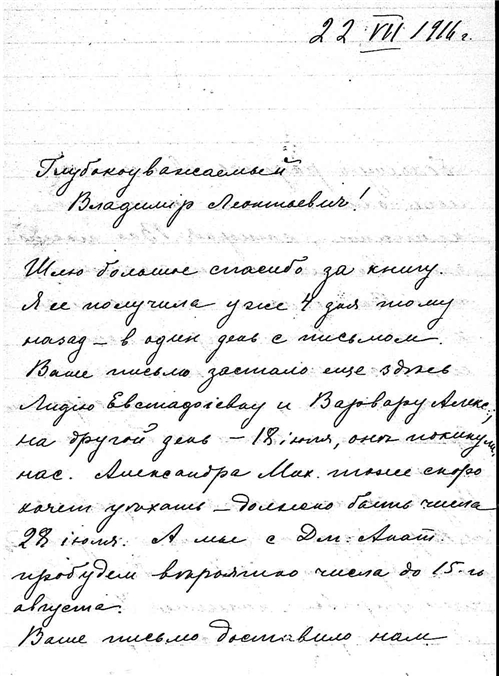 22 VII 1916 г.
Глубокоуважаемый
Владимир Леонтьевич!
Шлю большое спасибо за книгу.
Я ее получила уже 4 дня тому
назад – в один день с письмом.
Ваше письмо застало еще здѣсь
Лидію Евстафіевну и Варвару Алекс.;
на другой день – 18 іюля, онѣ покинули
нас. Александра Мих. тоже скоро
хочет уѣхать – должно быть числа
28 іюля. А мы с Дм. Анат.
пробудем вѣроятно числа до 15-го
августа.
Ваше письмо доставило нам